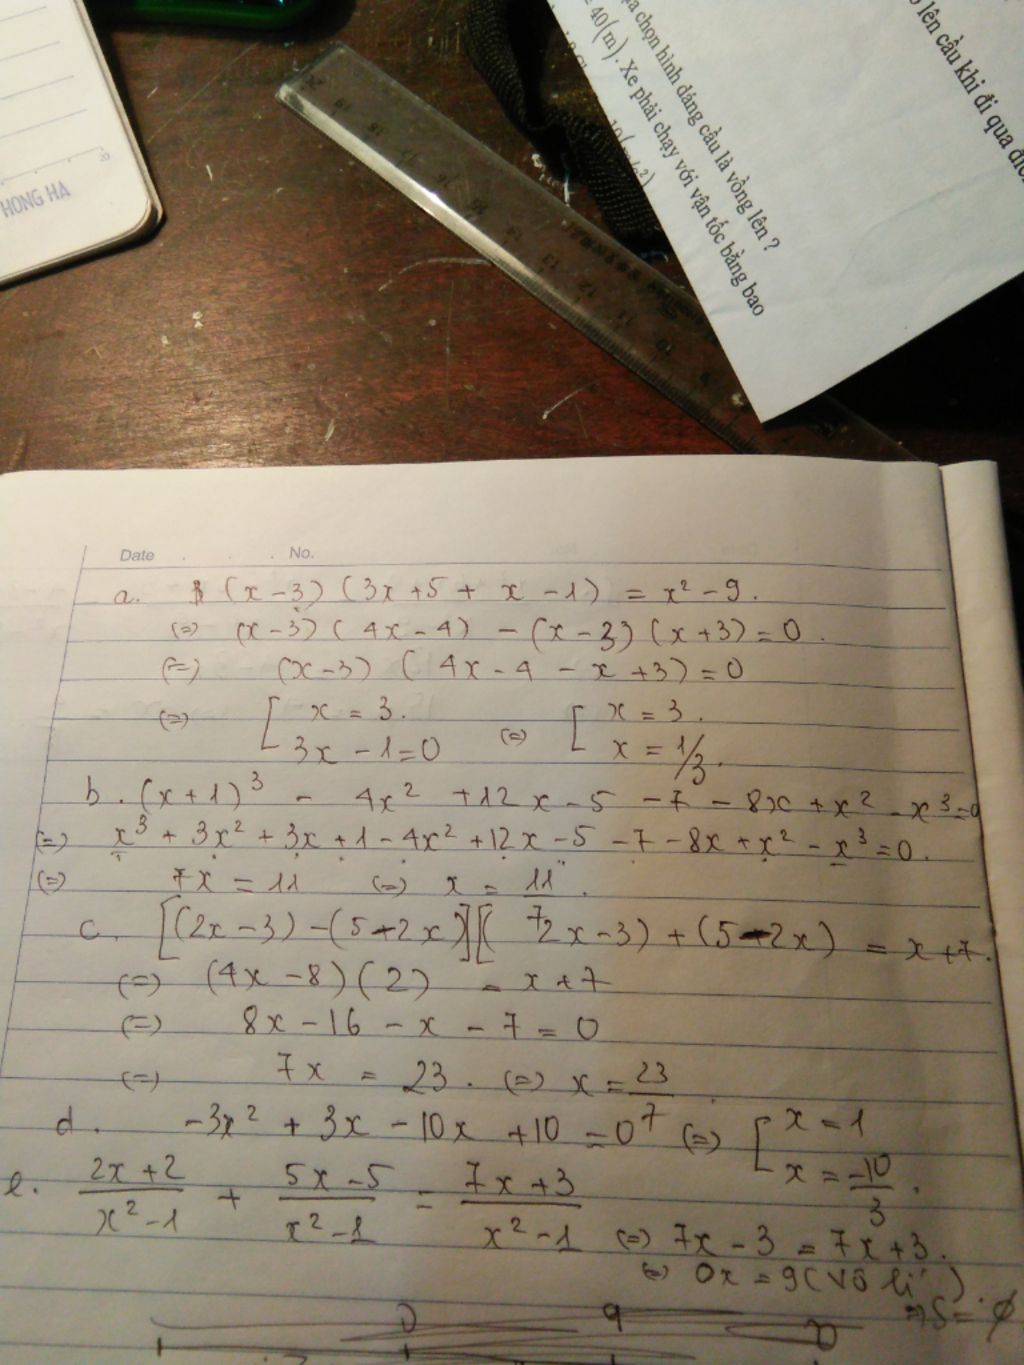 HONG HA
20
20 19 18 17 16 15 14 13 12 11 10 9
lên cầu khi đi qua
chọn hình dáng cầu là vồng lên ?
40(m). Xe phải chạy với vận tốc bằng bao
Date . . . No.
a. (x-3)(3x+5 + x -1) = x² -9.
(=) (x-3)(4x-4) - (x-3)(x+3)=0.
(=) (x-3) (4x-4 - x +3)=0
(=) [ x = 3. (=) [ x = 3.
3x -1=0 x = 1/3.
b. (x+1)³ - 4x² +12x-5 -7 -8x+x² -x³=0
(=) x³ + 3x² + 3x+1 -4x² +12x-5 -7 -8x+x² -x³=0.
(=) 7x = 11 (=) x = 11/7.
c. [(2x-3) -(5-2x)][(2x-3) +(5-2x) = x+7.
(=) (4x-8)(2) = x+7
(=) 8x-16 -x -7 =0
(=) 7x = 23. (=) x = 23/7.
d. -3x² + 3x -10x +10 =0 (=) [ x =1
x = -10/3.
e. 2x+2/x²-1 + 5x-5/x²-1 = 7x+3/x²-1
(=) 7x-3 = 7x+3.
(=) 0x = 9 (vô lí).
=> S= ∅
0 9